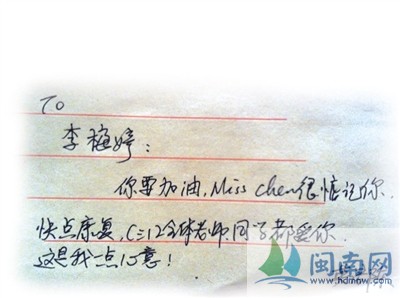 To
李梅婷:
你要加油,Miss Chen很惦记你.
快点康复,C三12全体老师、同学都爱你.
这是我一点心意!
闽南网
www.hdmnw.com